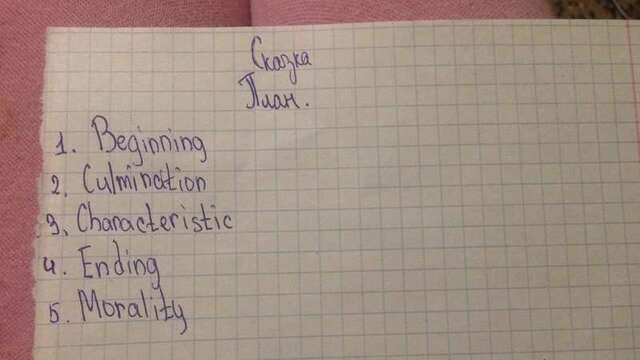 Сказка
План.
1. Beginning
2. Culmination
3. Characteristic
4. Ending
5. Morality